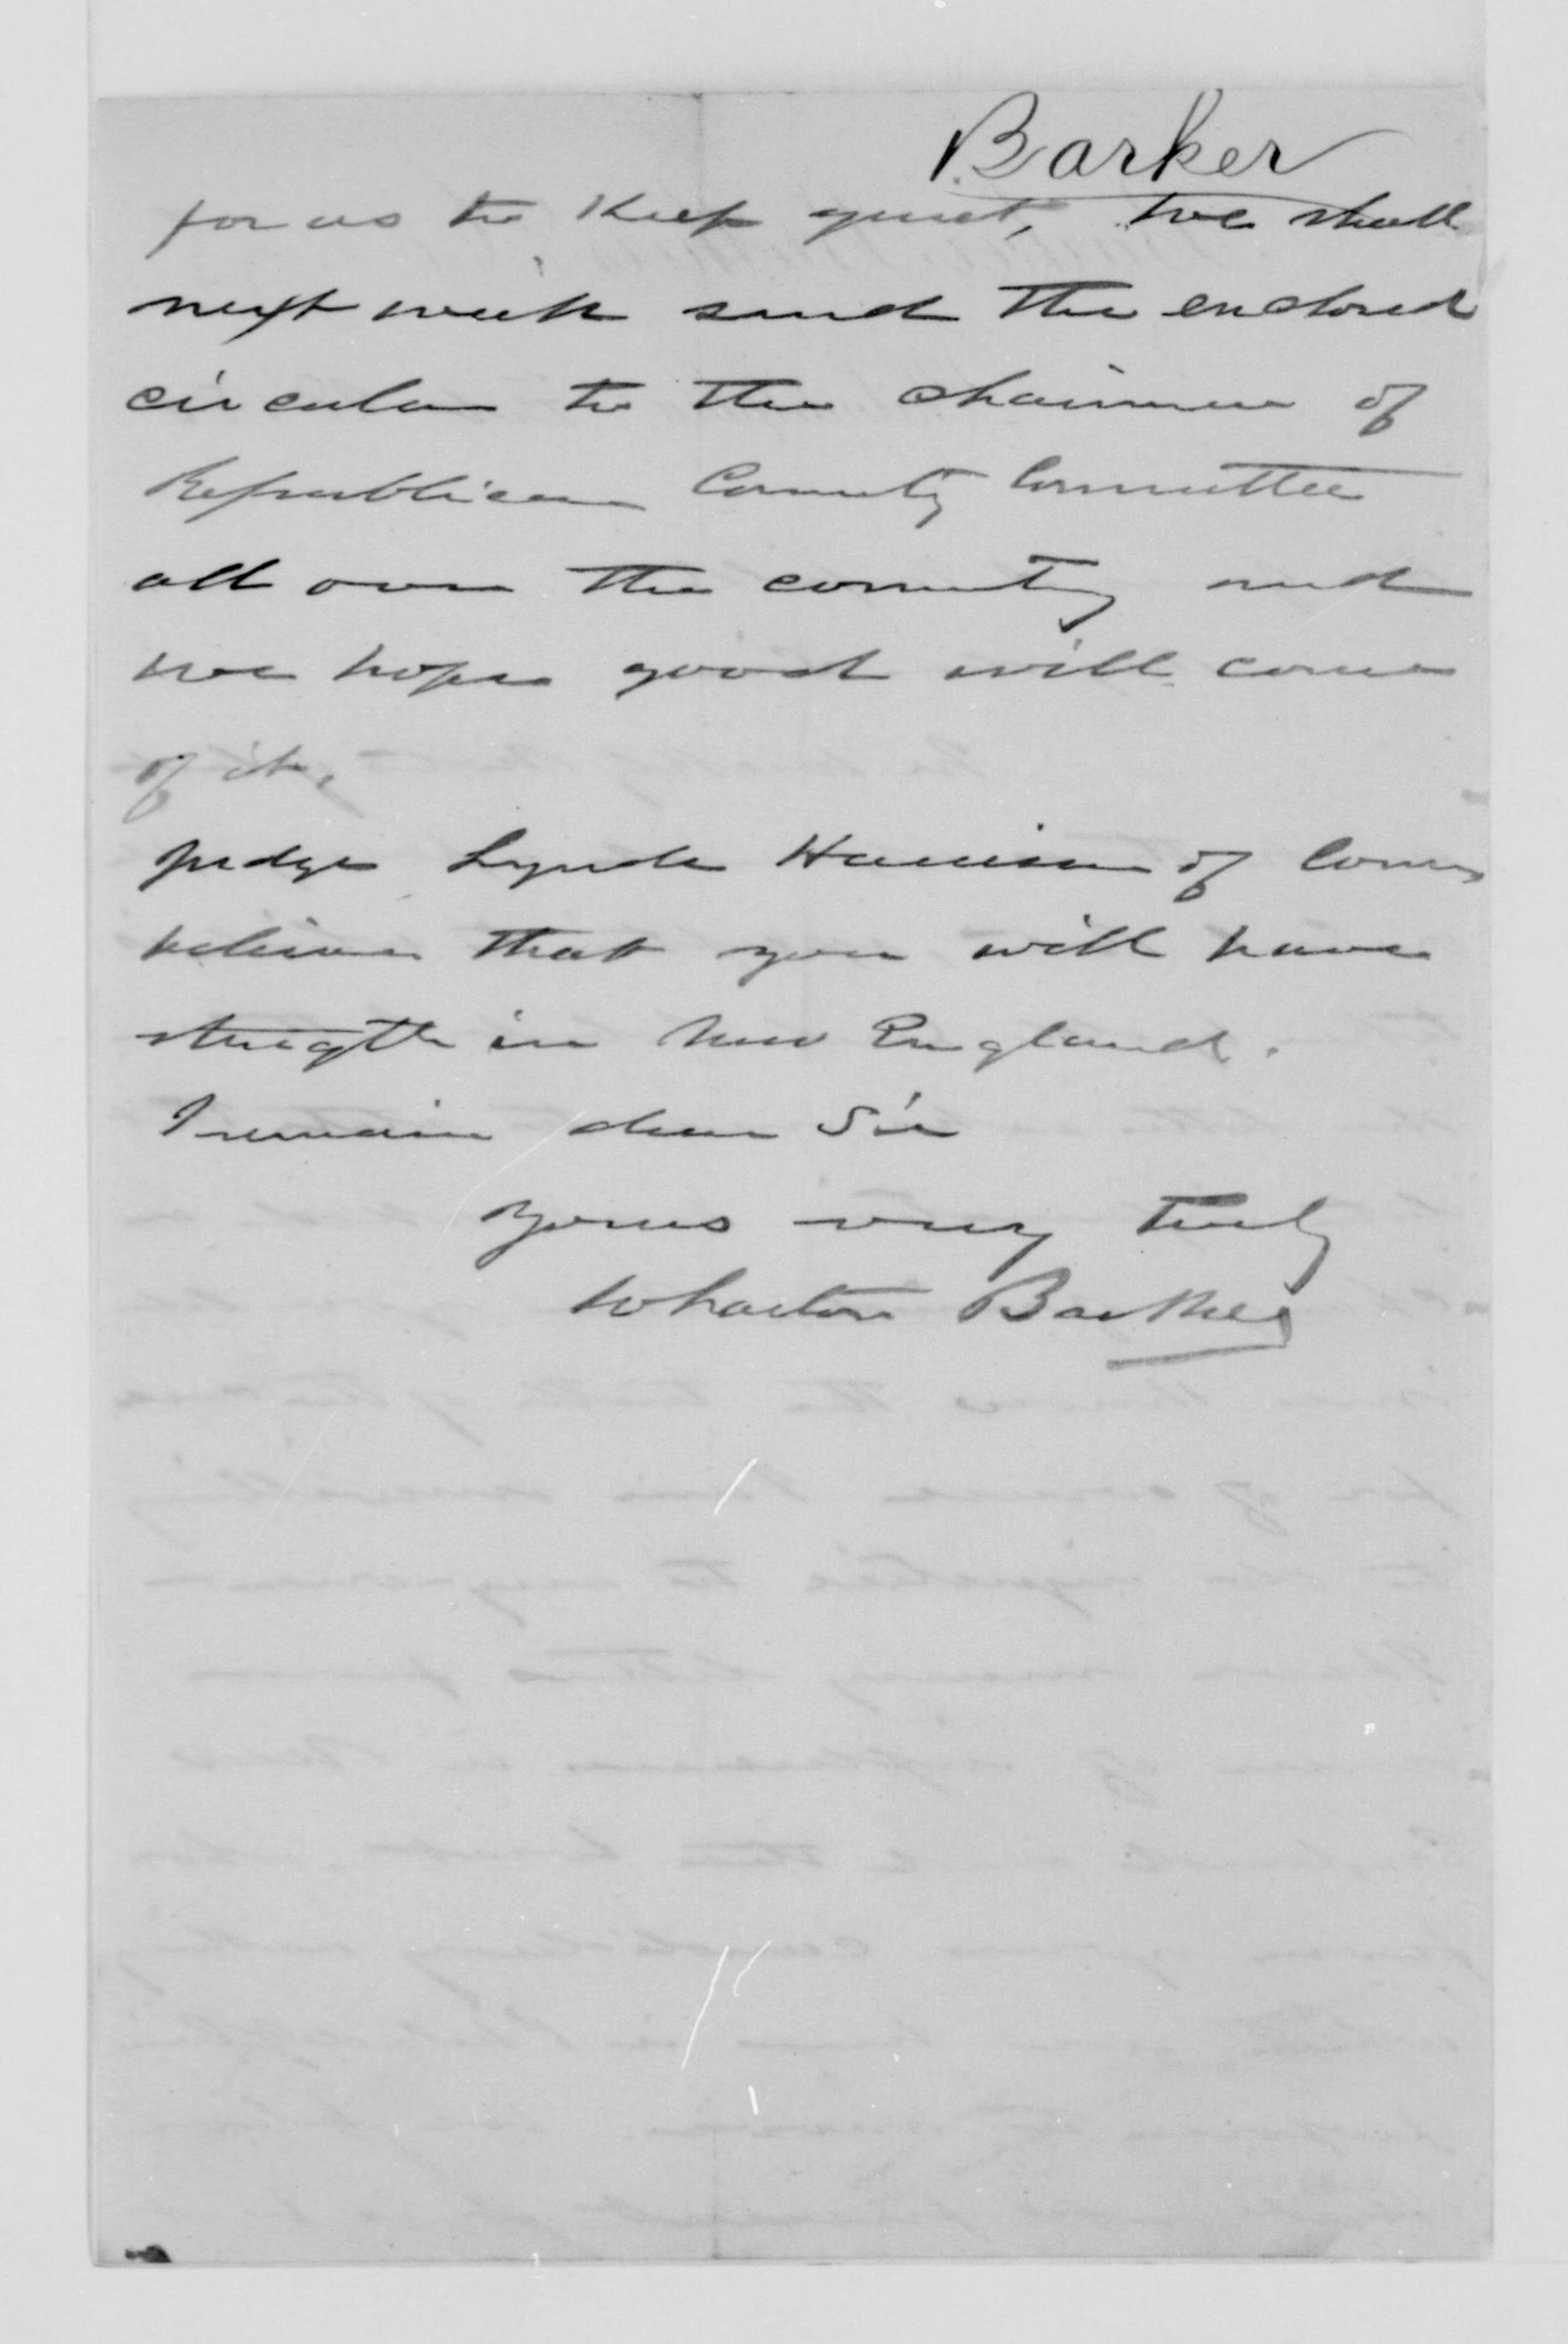 Barker
for us to keep quiet, We shall
next week send the enclosed
circular to the chairmen of
Republican County Committee
all over the country and
we hope good will come
of it.
Judge Lynde Harrison of Conn
believes that you will have
strength in New England.
I remain dear Sir
Yours very truly
Wharton Barker